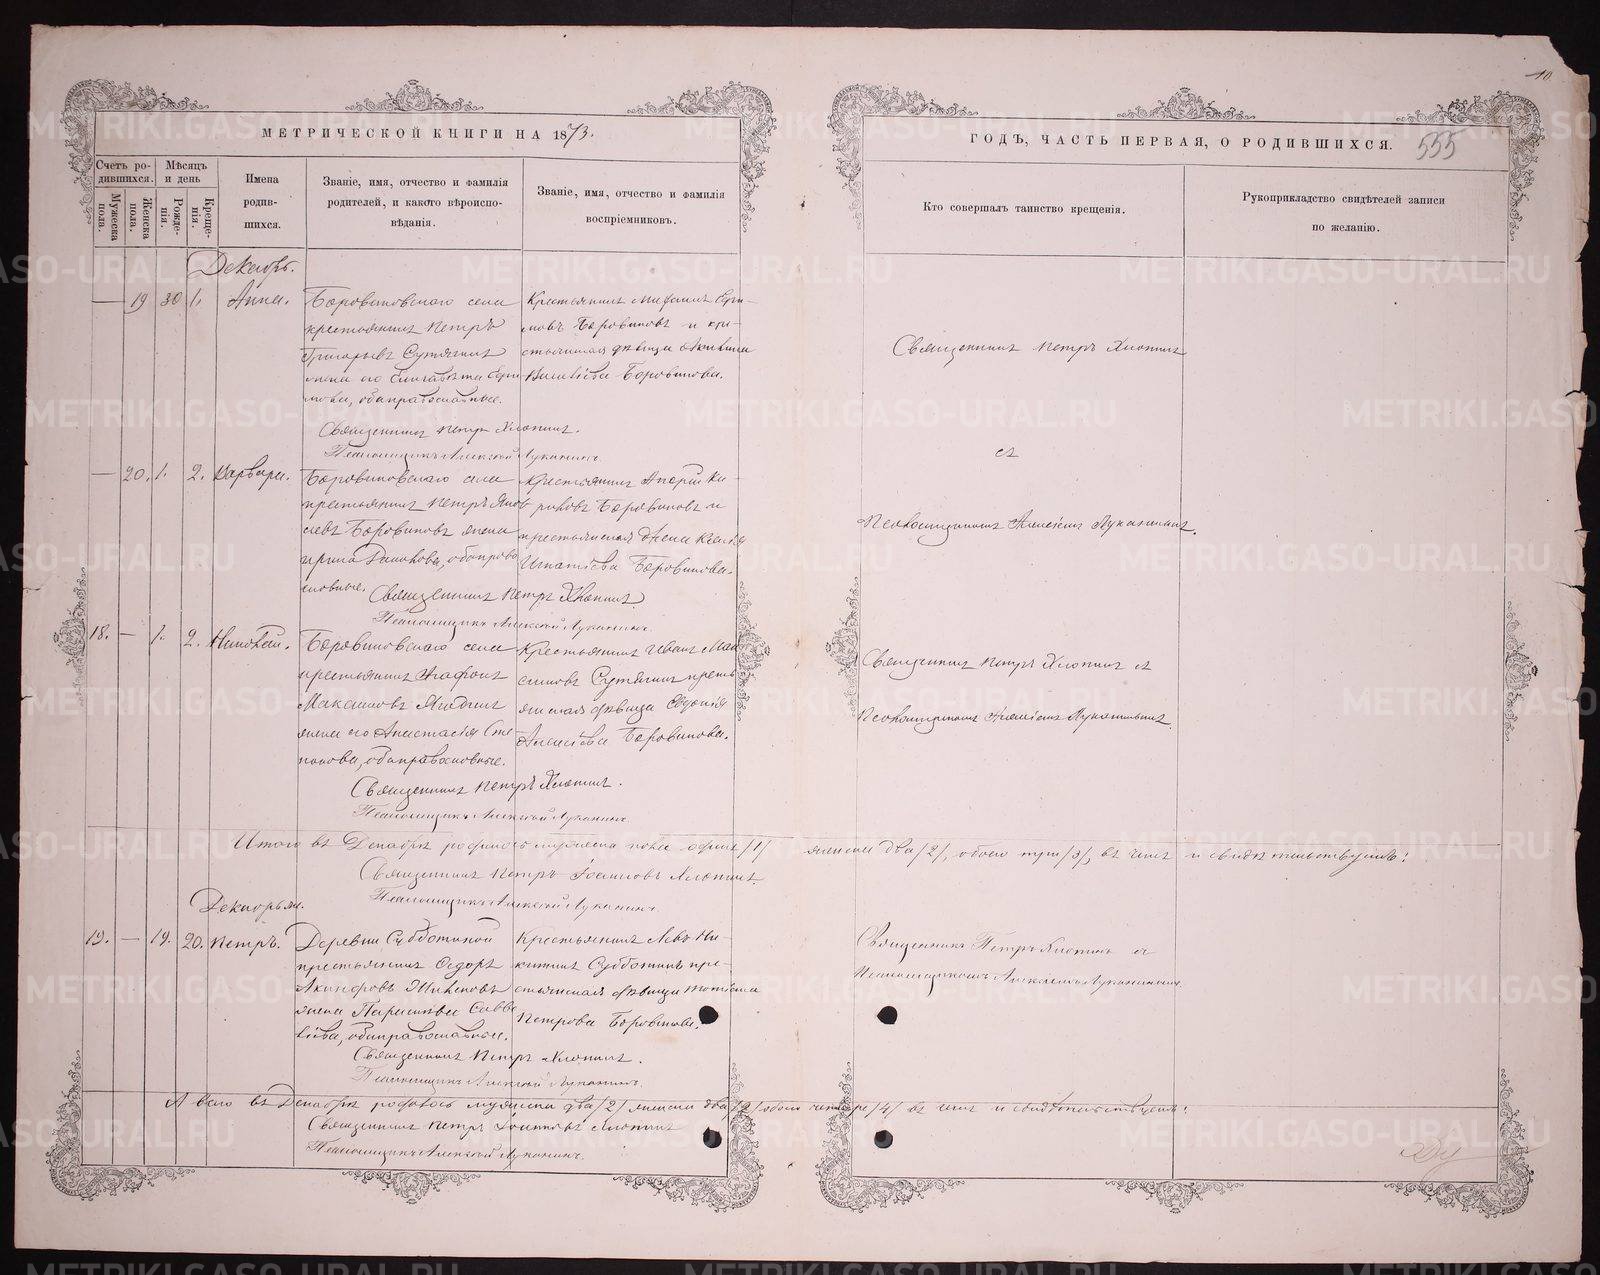 10
МЕТРИЧЕСКОЙ КНИГИ НА 1873.
ГОДЪ, ЧАСТЬ ПЕРВАЯ, О РОДИВШИХСЯ.
555
Счетъ родившихся.
Мужеска пола.
Женска пола.
Мѣсяцъ и день
Рожденія.
Крещенія.
Имена родившихся.
Званіе, имя, отчество и фамилія
родителей, и какого вѣроиспо-
вѣданія.
Званіе, имя, отчество и фамилія
воспріемниковъ.
Кто совершалъ таинство крещенія.
Рукоприкладство свидѣтелей записи
по желанію.
Декабрь.
— 19 30 1. Анна.
Боровиковскаго села
крестьянинъ Петръ
Григорьевъ Сутягинъ
жена его Елисавета
оба православные.
Крестьянинъ
Боровиковъ и кре-
стьянская дѣвица
Боровикова.
Священникъ Петръ Хлопинъ.
Псаломщикъ Алексѣй Луканинъ.
Священникъ Петръ Хлопинъ
съ
Псаломщикомъ Алексѣемъ Луканинымъ.
— 20. 1. 2. Варвара.
Боровиковскаго села
крестьянинъ Петръ Яков-
левъ Боровиковъ жена
оба право-
славные.
Крестьянинъ
Боровиковъ и
крестьянская
Игнатіева Боровикова.
Священникъ Петръ Хлопинъ
Псаломщикъ Алексѣй Луканинъ.
18. — 1. 2. Николай.
Боровиковскаго села
крестьянинъ Агафонъ
Максимовъ
жена его Анастасія Сте-
панова, оба православные.
Крестьянинъ Иванъ Мак-
симовъ Сутягинъ кресть-
янская дѣвица Евдокія
Алексѣева Боровикова.
Священникъ Петръ Хлопинъ.
Псаломщикъ Алексѣй Луканинъ.
Священникъ Петръ Хлопинъ съ
Псаломщикомъ Алексѣемъ Луканинымъ.
Итого въ Декабрѣ родилось мужеска пола одинъ /1/ женска два /2/, обоего три /3/, въ чемъ и свидѣтельствуемъ:
Священникъ Петръ Іоанновъ Хлопинъ.
Псаломщикъ Алексѣй Луканинъ.
Декабрь
19. — 19. 20. Петръ.
Деревни Субботиной
крестьянинъ Ѳедоръ
жена Параскева Савв-
оба православные.
Крестьянинъ Левъ Ни-
китинъ Субботинъ кре-
стьянская дѣвица
Петрова Боровикова.
Священникъ Петръ Хлопинъ.
Псаломщикъ Алексѣй Луканинъ.
Священникъ Петръ Хлопинъ съ
Псаломщикомъ Алексѣемъ Луканинымъ.
А всего въ Декабрѣ родилось мужеска два /2/ женска два /2/ обоего четыре /4/ въ чемъ и свидѣтельствуемъ:
Священникъ Петръ Іоанновъ Хлопинъ
Псаломщикъ Алексѣй Луканинъ.
METRIKI.GASO-URAL.RU